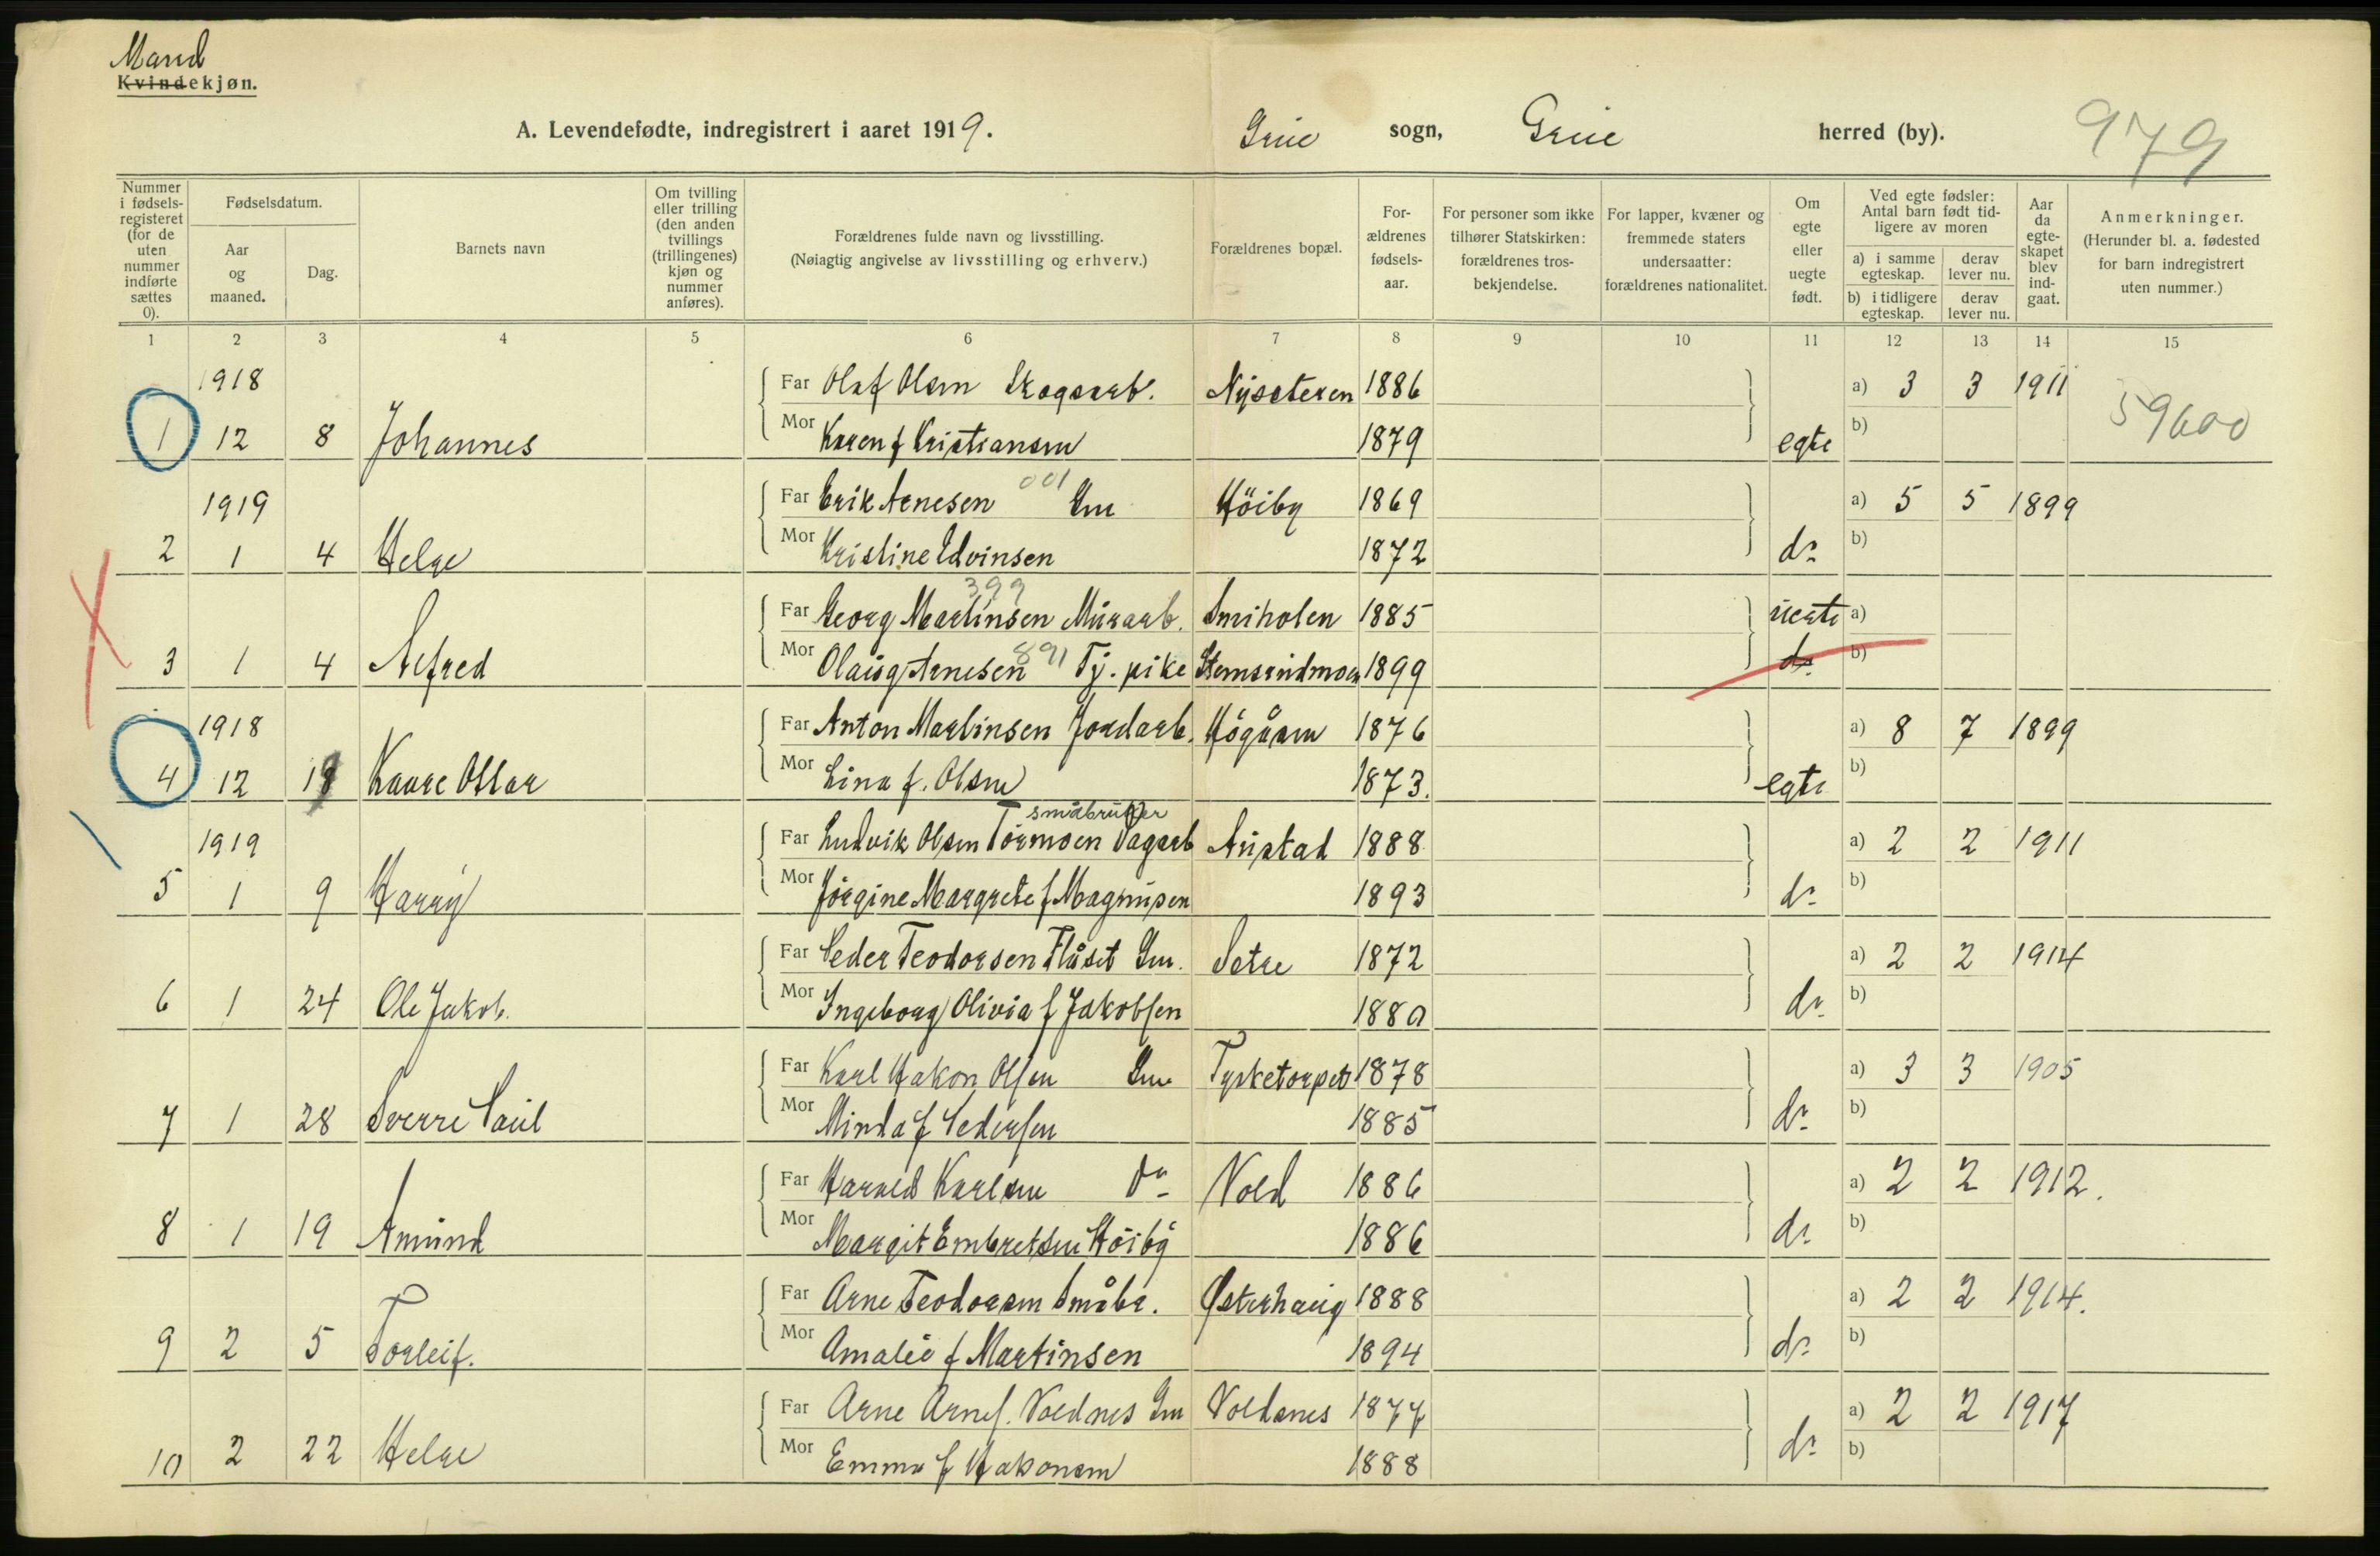 Mand
Kvindekjøn.
A. Levendefødte, indregistrert i aaret 1919. Grue sogn, Grue herred (by). 979
Nummer i fødselsregisteret (for de uten nummer indførte sættes 0). Fødselsdatum. Aar og maaned. Dag. Barnets navn Om tvilling eller trilling (den anden tvillings (trillingenes) kjøn og nummer anføres). Forældrenes fulde navn og livsstilling. (Nøiagtig angivelse av livsstilling og erhverv.) Forældrenes bopæl. Forældrenes fødselsaar. For personer som ikke tilhører Statskirken: forældrenes trosbekjendelse. For lapper, kvæner og fremmede staters undersaatter: forældrenes nationalitet. Om egte eller uegte født. Ved egte fødsler: Antal barn født tidligere av moren a) i samme egteskap. derav lever nu. b) i tidligere egteskap. derav lever nu. Aar da egteskapet blev indgaat. Anmerkninger. (Herunder bl. a. fødested for barn indregistrert uten nummer.)
1 2 3 4 5 6 7 8 9 10 11 12 13 14 15
1918 Far Olaf Olsen Skogsarb. Nysæteren 1886 a) 3 3 1911
1 12 8 Johannes Mor Karen f Kristiansen 1879 egte b) 59600
1919 Far Erik Arnesen 001 Gm Höiby 1869 a) 5 5 1899
2 1 4 Helge Mor Kristine Edvinsen 1872 do b)
399
Far Georg Martinsen Murarb. Smiholen 1885 uegte a)
3 1 4 Alfred Mor Olaug Arnesen 891 Tj. pike Stemsrudmoen 1899 do b)
1918 Far Anton Martinsen Jordarb. Högåsen 1876 a) 8 7 1899
4 12 18 Kaare Ottar Mor Lina f. Olsen 1873. egte b)
småbruker
1919 Far Ludvik Olsen Tormoen Dagarb Austad 1888 a) 2 2 1911
5 1 9 Harry Mor Jörgine Margrete f Magnusen 1893 do b)
Far Peder Teodorsen Flåset Gm. Setre 1872 a) 2 2 1914
6 1 24 Ole Jakob. Mor Ingeborg Olivia f Jakobsen 1880 do b)
Far Karl Hakon Olsen Gm Tysketorpet 1878 a) 3 3 1905
7 1 28 Sverre Paul Mor Minda f Pedersen 1885 do b)
Far Harald Karlsen Do Vold 1886 a) 2 2 1912.
8 1 19 Amund Mor Margit Embretsen Höiby 1886 do b)
Far Arne Teodorsen Småbr. Østerhaug 1888 a) 2 2 1914.
9 2 5 Torleif. Mor Amalie f Martinsen 1894 do b)
Far Arne Arnes. Voldnes Gm Voldnes 1877 a) 2 2 1917
10 2 22 Helge Mor Emma f Hakonsen 1888 do b)